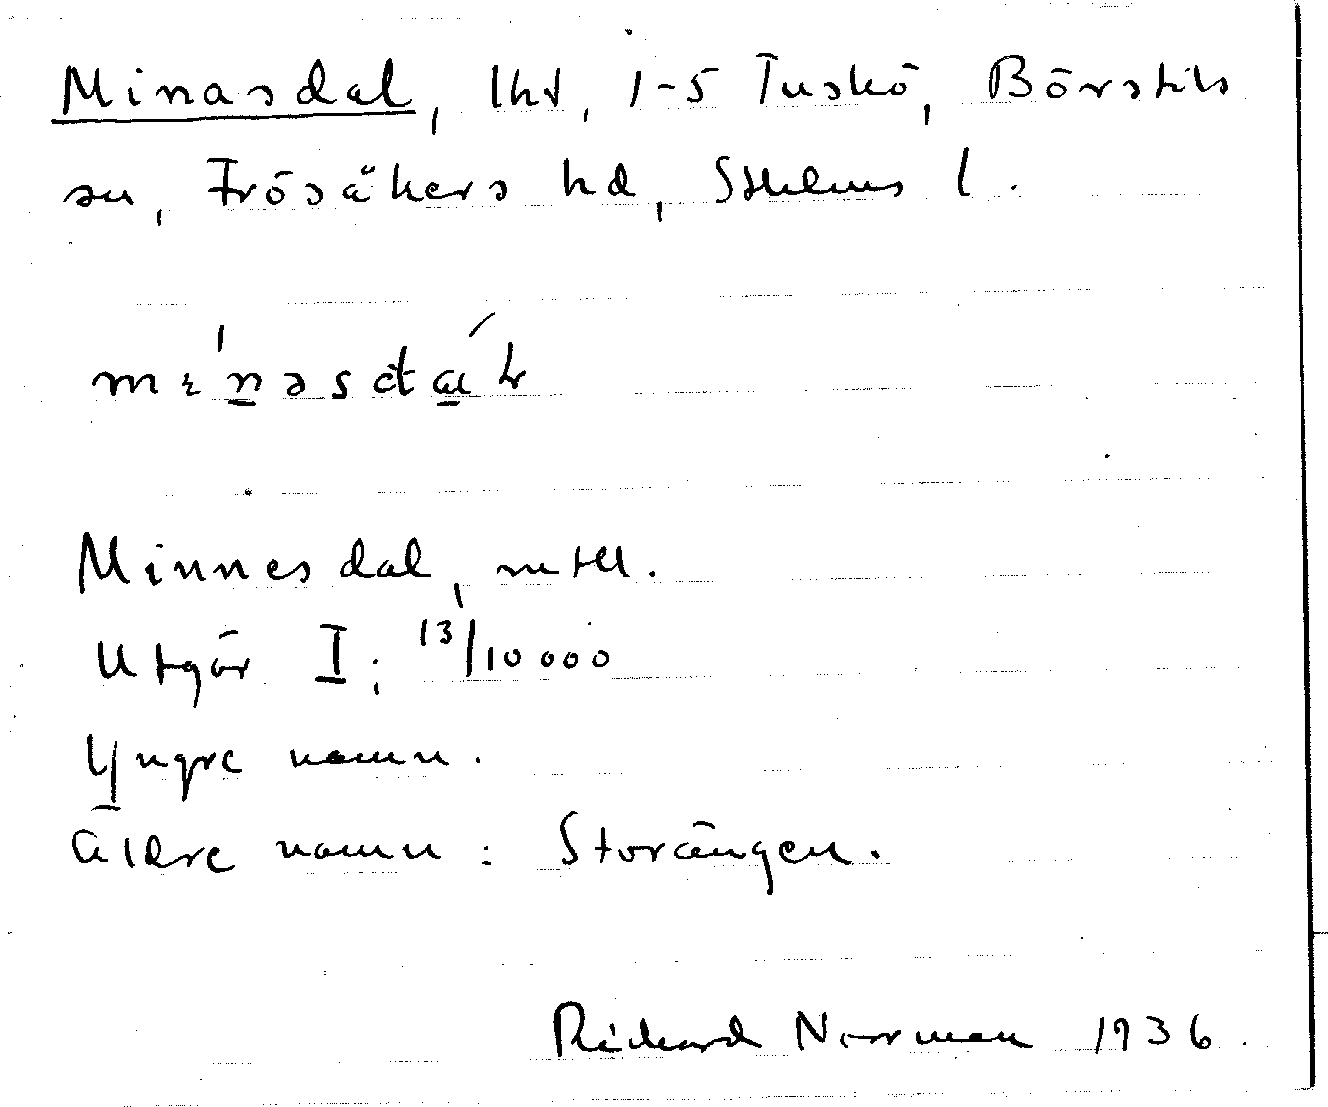 Minasdal, lht, 1-5 Tuskö, Börstils
sn, Frösåkers hd, Sthlms l.
Minnesdal, mtl.
Utgör I: 13/10 000
Yngre namn.
Äldre namn: Storängen.
Rickard Norrman 1936.